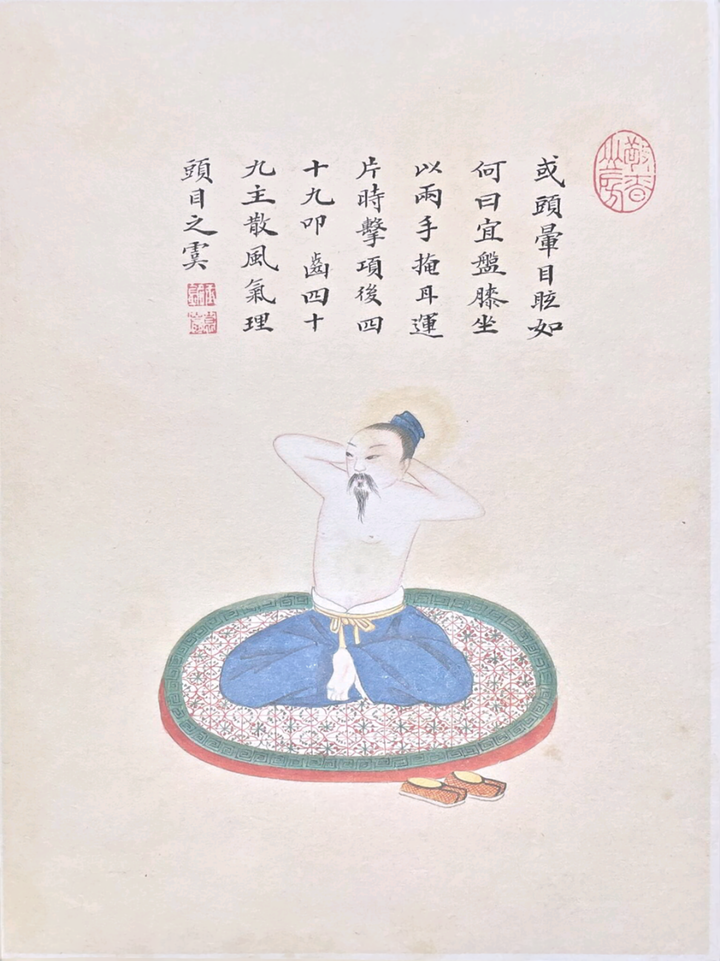 或頭暈目眩如
何曰宜盤膝坐
以兩手掩耳運
片時擊項後四
十九叩齒四十
九主散風氣理
頭目之虞